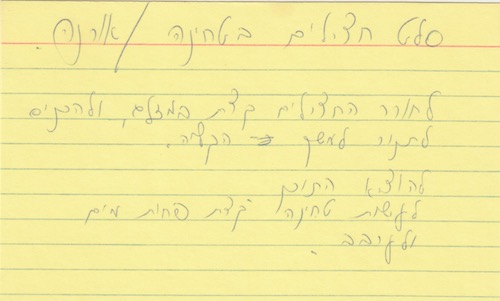 סלט חצילים בטחינה / אורנה.
לחורר החצילים קצת במזלג, ולהכניס
לתנור למשך כ- הקליה.
להוציא התוכן
לעשות טחינה קצת פחות מים
ולערבב.